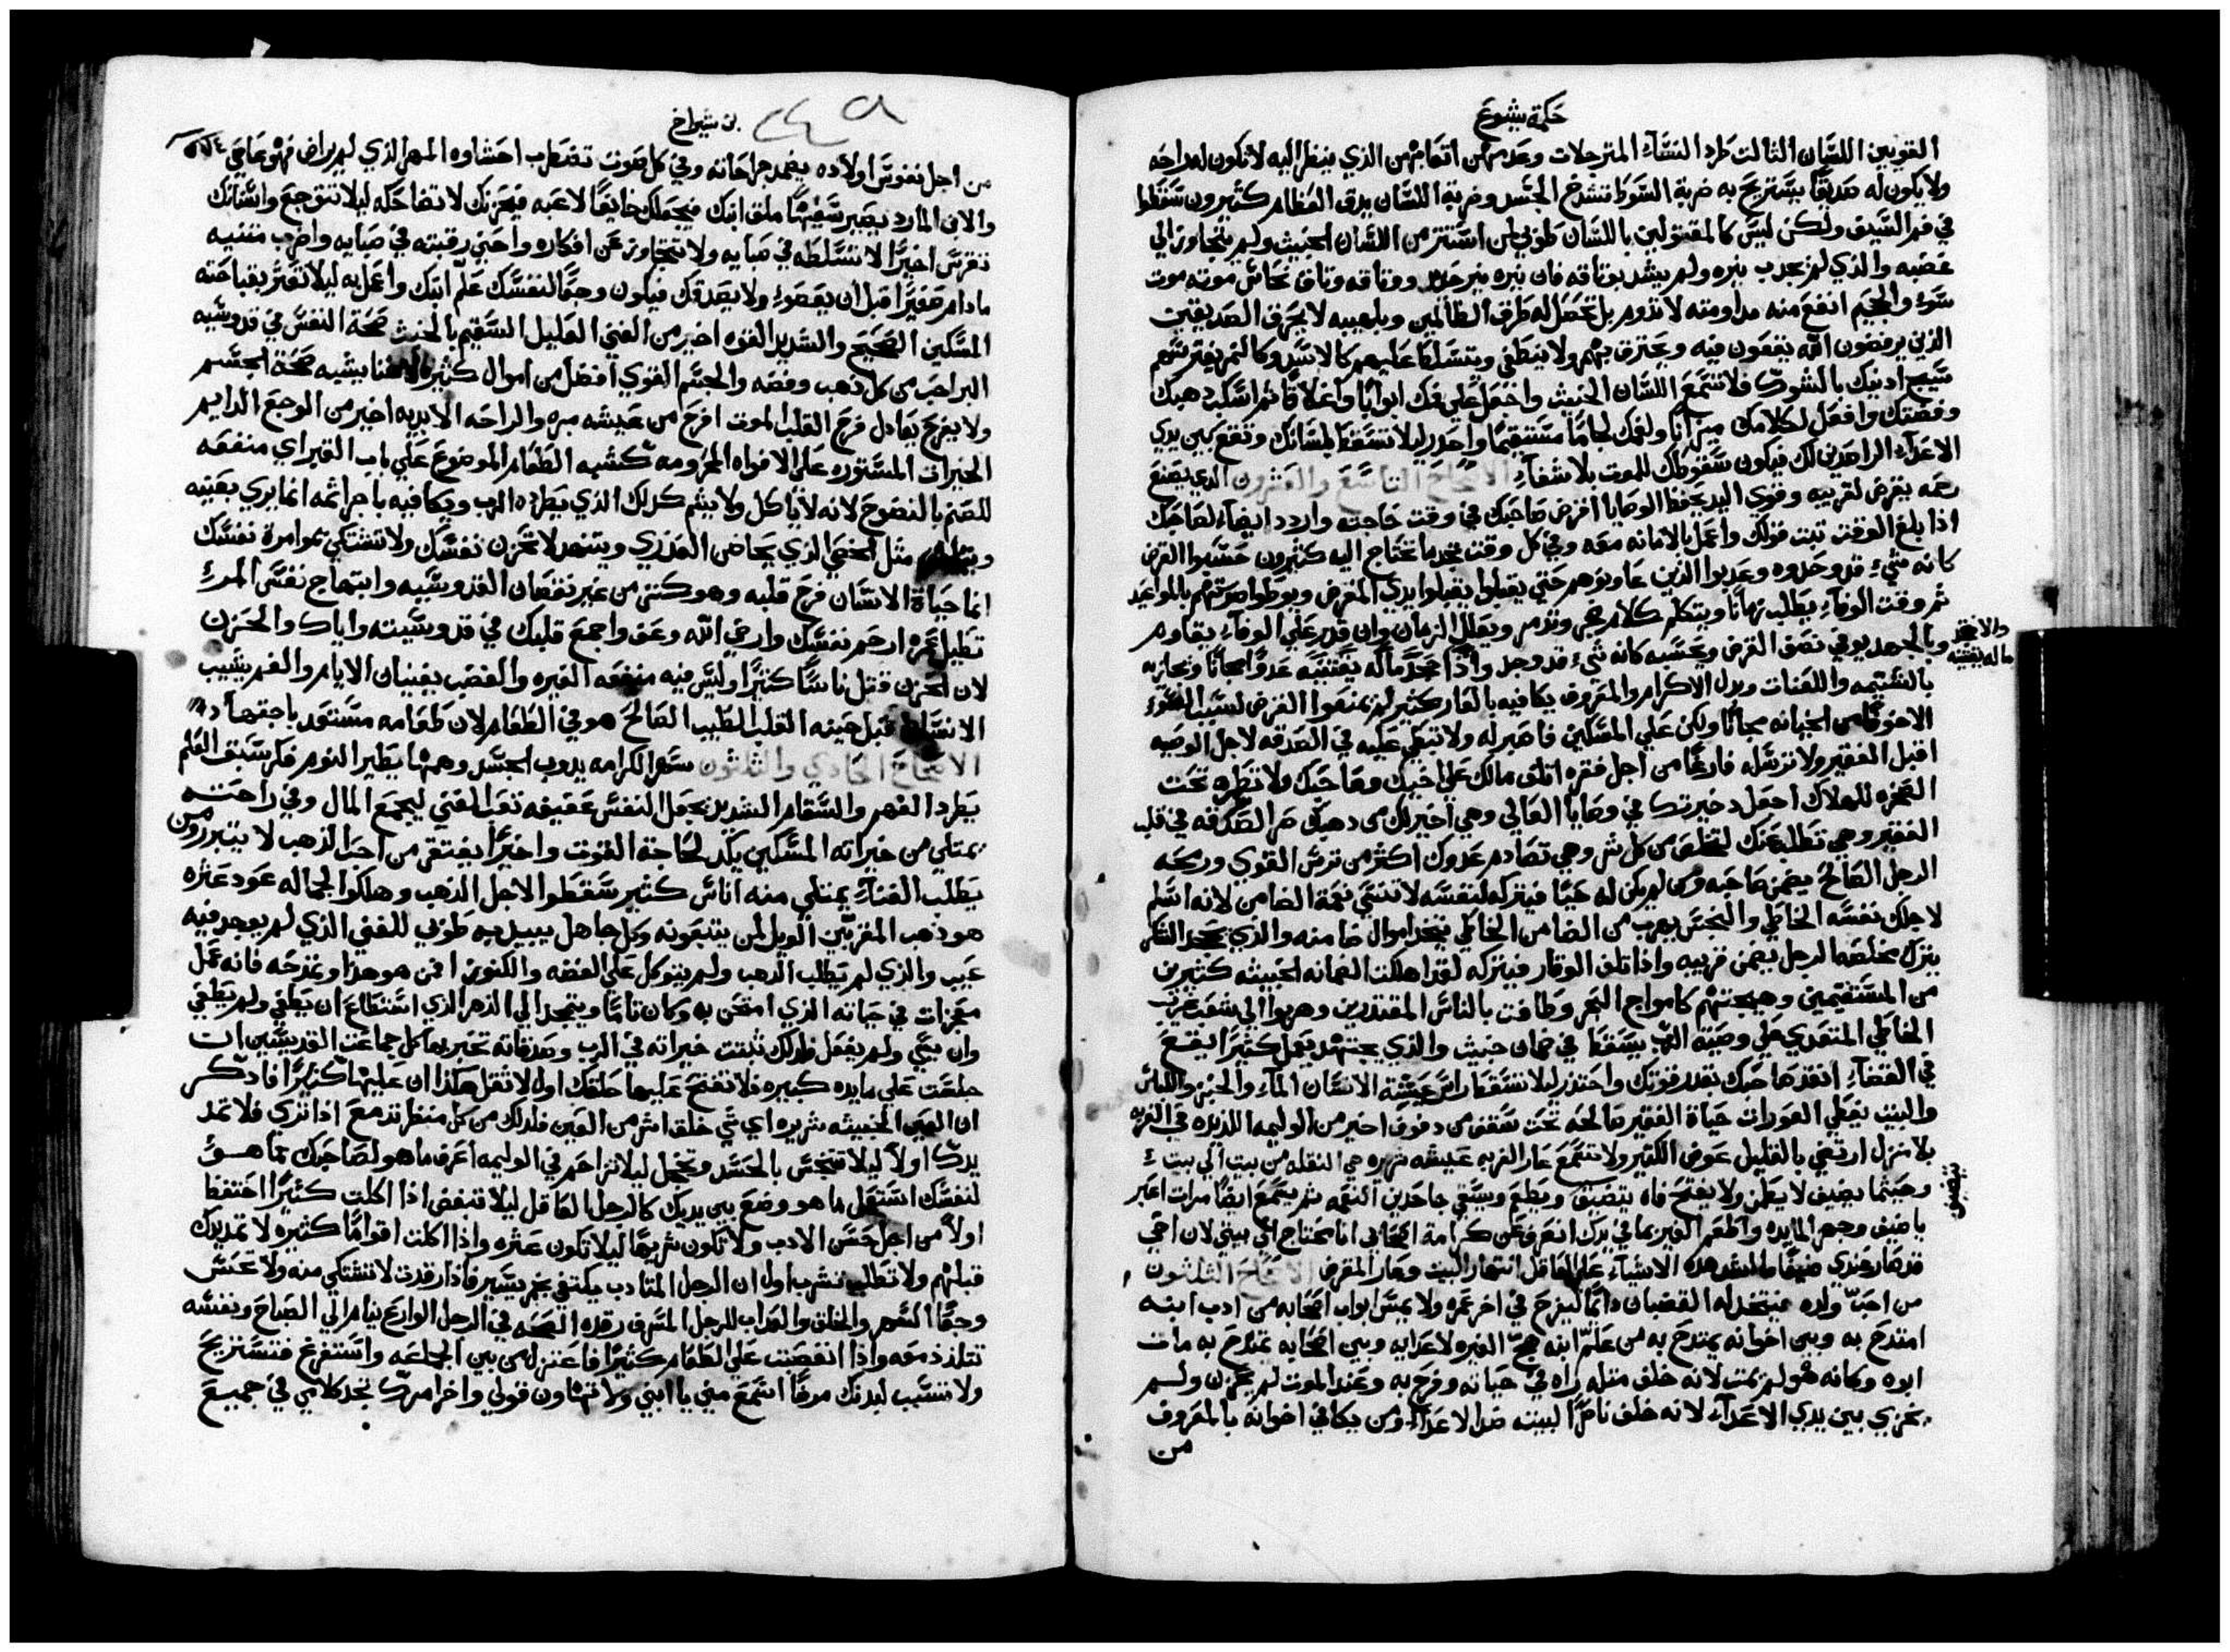 حكمة يشوع
القويين اللسان الثالث طرد النساء المترجلات وعدمهن اتعابهن الذي ينظر اليه لا تكون له راحه
ولا يكون له صديقًا يستريح به ضربة السوط تشدخ الجسد وضربة اللسان يدق العظام كثيرون سقطوا
في فم السيف ولكن ليس كالمقتولين باللسان طوبى لمن استتر من اللسان الخبيث ولم يتجاوز الى
غضبه والذي لم يجدب نيره ولم يشد بوثاقه فان نيره نير حديد ووثاقه وثاق نحاس موته موت
سوء والجحيم انفع منه مداومته لا تدوم بل تحصل له طرق الظالمين وبلهيبه لا يحرق الصديقين
الذين يرفضون الله يقعون فيه ويحترق بهم ولا ينطفي ويتسلط عليهم كالاسد وكالنمر يفترسهم
سيج ادنيك بالشوك فلا تستمع اللسان الخبيث واجعل على فمك ابوابًا واغلاقًا ثم اسكب دهبك
وفضتك وافعل لكلامك ميزانًا ولفمك لجامًا مستقيمًا واحدر ليلا تسقط بلسانك وتقع بين يدي
الاعداء الراصدين لك فيكون سقوطك للموت بلا شفاء الاصحاح التاسع والعشرون الذي يصنع
رحمه يقرض لقريبه وقوي اليد يحفظ الوصايا اقرض صاحبك في وقت حاجته واردد ايضًا لصاحبك
اذا بلغ الوقت تبت قولك واعمل بالامانه معه وفي كل وقت تجد ما تحتاج اليه كثيرون حسبوا القرض
كانه شيء قد وجدوه وعدبوا الذين عاونوهم حتى يقبلوا يقبلوا يدي المقرض ويوطوا صوتهم بالمواعيد
ثم وقت الوفاء يطلب زمانًا ويتكلم كلام ضجر وتذمر ويعلل الزمان وان قدر على الوفاء يقاوم
وبالجهد يوفي نصف القرض ويحسبه كانه شيء قد وجد واذا جحد ماله يقتنيه عدوًا مجانًا ويجازيه
والا يفقد
ماله يقتنيه
بالشتيمه واللعنات وبدل الاكرام والمعروف يكافيه بالعار كثير لم يمنعوا القرض لسبب السوء
الا خوفًا من الخيانه مجانًا ولكن على المسكين فاصبر له ولا تبطي عليه في الصدقه لاجل الوصيه
اقبل الفقير ولا ترسله فارغًا من اجل فقره اتلف مالك على اخيك وصاحبك ولا تطمره تحت
الصخره للهلاك اجعل دخيرتك في وصايا العالي وهي اخير لك من دهبك صر الصدقه في قلب
الفقير وهي تطلب عنك لتخلص من كل شر وهي تصادم عدوك اكثر من ترس القوي ورمحه
الرجل الصالح يضمن صاحبه ومن لم يكن له حيًا فيتركه لنفسه لا تنسى نعمة الضامن لانه اسلم
لاجلك نفسه الخاطي والنجس يهرب من الضامن الخاطي يتخد اموال ضامنه والذي يجحد الشكر
يترك مخلصه الرجل يضمن قريبه واذا تلف الوقار فيتركه لقد اهلكت الضمانه الخبيثه كثيرين
من المستقيمين وهيجتهم كامواج البحر وطافت بالناس المقتدرين وهربوا الى شعب غريب
الخاطي المتعدي على وصية الرب يسقط في ضمان خبيث والذي يجتهد يعمل كثيرًا يقع
في القضاء انقذ صاحبك بقدر قوتك واحتذر ليلا تسقط راس عيشة الانسان الماء والخبز واللباس
والبيت يغطي العورات حياة الفقير صالحه تحت سقف من دفوف اخير من الوليمه اللذيذه في الغربه
بلا منزل ارتضي بالقليل عوض الكثير ولا تستمع عار الغربه عيشه شريره هي النقله من بيت الى بيت
وحيثما يضيف لا يطمن ولا يفتح فاه يتضيق ويطعم ويسقي جاحدين النعمه ثم يستمع ايضًا مرات اعبر
يا ضيف وجهز المايده واطعم الغير بما في يدك انعرف عن كرامة اصحابي انا محتاج الى بيتي لان اخي
قد صار عندي ضيفًا ما اشد هذه الاشياء على العاقل انتهار البيت وعار المقرض الاصحاح الثلثون
من احب ولده يتخد له القضبان دائمًا ليفرح في اخر عمره ولا يمس ابواب اصحابه من ادب ابنه
امتدح به وبين اخوانه يمتدح به من علم ابنه هيج الغيره لاعدايه وبين اصحابه يمتدح به مات
ابوه وكانه هو لم يمت لانه خلف مثله راه في حياته وفرح به وعند الموت لم يحزن ولم
يخزي بين يدي الاعداء لانه خلف ناصرًا لبيته ضد الاعداء ومن يكافي اخوانه بالمعروف
من
بن شيراخ
من اجل نفوس اولاده يضمد جراحاته وفي كل صوت تضطرب احشاوه المهر الذي لم يراض فهو عاصي
والابن المارد يصير سفيهًا ملق ابنك فيجعلك خايفًا لاعبه فيحزنك لا تضاحكه ليلا تتوجع واسنانك
تضرس اخيرًا لا تسلطه في صبايه ولا تتجاوز عن افكاره واحني رقبته في صبايه واضرب متنيه
ما دام صغيرًا قبل ان يقسوء ولا يصدقك فيكون وجعًا لنفسك علم ابنك واعمل به ليلا تعتر بقباحته
المسكين الصحيح والشديد القوه اخير من الغني العليل السقيم بالخبث صحة النفس في قدوسيه
البر احب من كل ذهب وفضه والجسم القوي افضل من اموال كثيره لا غنا يشبه صحة الجسم
ولا يفرح يعادل فرح القلب الموت افرح من عيشه مره والراحه الابديه اخير من الوجع الدايم
الخيرات المستوره على الافواه المخزومه كشبه الطعام الموضوع على باب القبر اي منفعه
للصنم بالنضوح لانه لا ياكل ولا يشم كدلك الذي يطرده الرب ويكافيه باجراثمه انما يرى بعينيه
ويتنهد مثل الخصي الذي يحاضن العذري ويتنهد لا تحزن نفسك ولا تشتكي بموامرة نفسك
انما حياة الانسان فرح قلبه وهو كنز من غير نقصان القدوسيه وابتهاج نفس المرء
تطيل عمره ارحم نفسك وارضي الله وعف واجمع قلبك في قدوسيته واياك والحزن
لان الحزن قتل ناسًا كثيرًا وليس فيه منفعه الغيره والغضب يفنيان الايام والغم يشيب
الانسان قبل حينه القلب الطيب الصالح هو في الطعام لان طعامه مستعد باجتهاد
الاصحاح الحادي والثلثون سهر الكرامه يدوب الجسد وهمها يطير النوم فكر سبق العلم
يطرد الفهم والسقام الشديد يجعل النفس عفيفه تعب الغني ليجمع المال وفي راحته
يمتلي من خيراته المسكين يكد لحاجة القوت واخيرًا يفتقر من احب الذهب لا يتبرر ومن
يطلب الفناء يمتلي منه اناس كثير سقطوا لاجل الذهب وهلكوا لجماله عود عثره
هو ذهب المقربين الويل لمن يتبعونه وكل جاهل يبيد به طوبى للغني الذي لم يوجد فيه
عيب والذي لم يطلب الذهب ولم يتوكل على الفضه والكنوز فمن هو هذا ونمدحه فانه عمل
معجزات في حياته الذي امتحن به وكان تامًا ويتمجد الى الدهر الذي استطاع ان يطغي ولم يطغي
وان يسي ولم يفعل فلدلك ثبتت خيراته في الرب وصدقاته تخبر بها كل جماعة القديسين ان
جلست على مايده كبيره فلا تفتح عليها حلقك اولا لا تقل هكذا ان عليها كثيرًا فادكر
ان العين الخبيثه شريره اي شي خلق اشر من العين فلدلك من كل منظر تدمع اذا ترى فلا تمد
يدك اولاً ليلا تتنجس بالحسد وتخجل ليلا تزاحم في الوليمه اعرف ما هو لصاحبك مما هو
لنفسك استعمل ما هو وضع بين يديك كالرجل العاقل ليلا تبغض اذا اكلت كثيرًا احتفظ
اولاً من اجل حسن الادب ولا تكون شريهًا ليلا تكون عثره واذا اكلت اقوامًا كثيره لا تمد يدك
قبلهم ولا تطلب تشرب اول ان الرجل المتادب يكتفي بخمر يسير فاذا رقدت لا تشتكي منه ولا تحس
وجعًا السهر والخلق والعداب للرجل المسرف رقدة الصحه في الرجل الوارع ينام الى الصباح ونفسه
تتلذذ معه واذا انغصبت على الطعام كثيرًا فاعتزل من بين الجماعه واستفرغ فتستريح
ولا تسبب لبدنك مرضًا استمع مني يا ابني ولا تتهاون قولي واخر امرك تجد كلامي في جميع